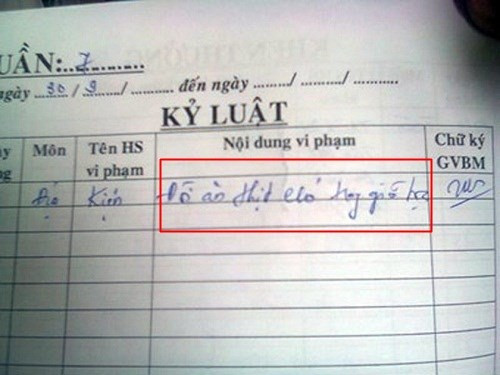 UẦN:...7............
gày ...30.../...9.../............ đến ngày ........./........./............
KỶ LUẬT
Môn Tên HS vi phạm Nội dung vi phạm Chữ ký GVBM
Địa Kiến Đồ ăn thịt chó trg giờ học